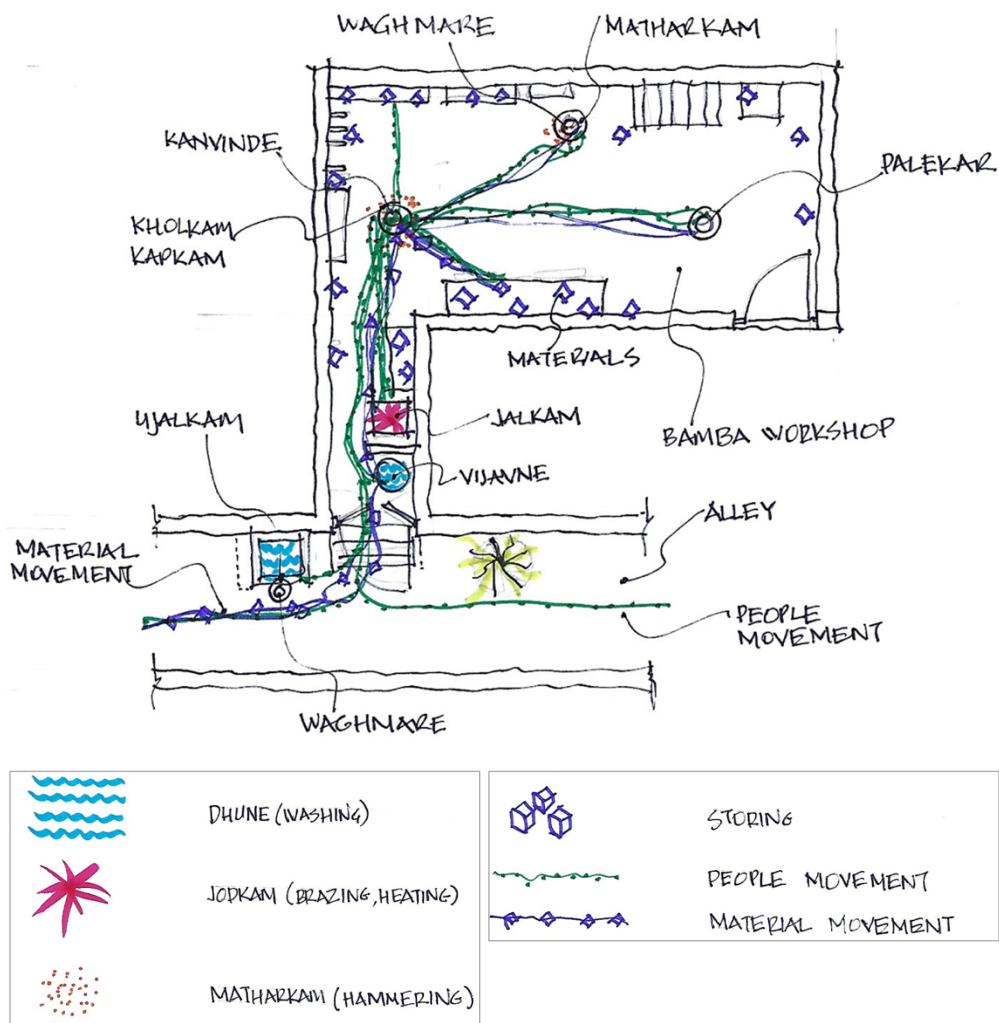 WAGHMARE
MATHARKAM
KANVINDE
PALEKAR
KHOLKAM
KAPKAM
MATERIALS
UJALKAM
JALKAM
BAMBA WORKSHOP
VIJAVNE
ALLEY
MATERIAL
MOVEMENT
PEOPLE
MOVEMENT
WAGHMARE
DHUNE (WASHING)
JODKAM (BRAZING, HEATING)
MATHARKAM (HAMMERING)
STORING
PEOPLE MOVEMENT
MATERIAL MOVEMENT